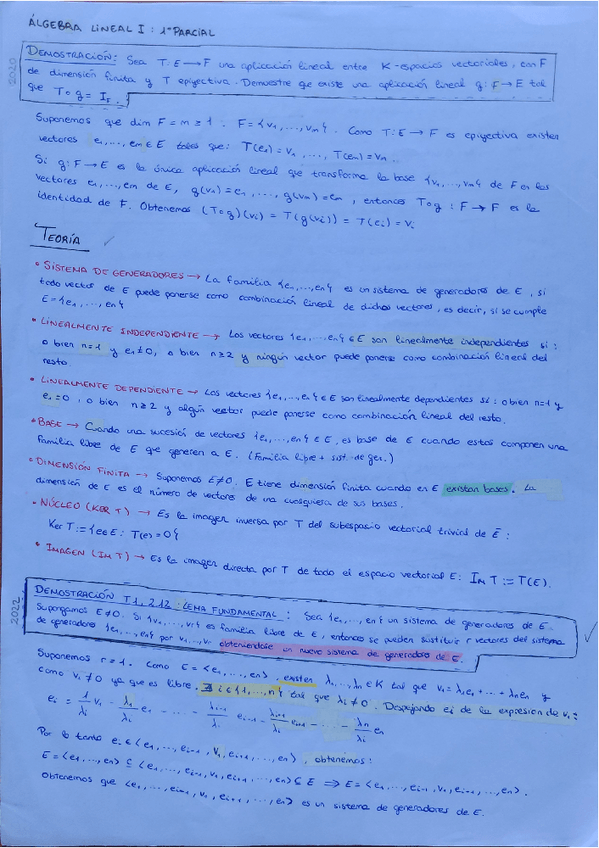 ÁLGEBRA LINEAL I : 1er PARCIAL
2020
DEMOSTRACIÓN: Sea T: E → F una aplicación lineal entre K-espacios vectoriales, con F
de dimensión finita y T epiyectiva. Demuestre que existe una aplicación lineal g: F → E tal
que T∘g = I_F.
Suponemos que dim F = m ≥ 1. F = <v₁, ..., vₘ>. Como T: E → F es epiyectiva existen
vectores e₁, ..., eₘ ∈ E tales que: T(e₁) = v₁, ..., T(eₘ) = vₘ.
Si g: F → E es la única aplicación lineal que transforma la base {v₁, ..., vₘ} de F en los
vectores e₁, ..., eₘ de E, g(v₁) = e₁, ..., g(vₘ) = eₘ, entonces T∘g: F → F es la
identidad de F. Obtenemos (T∘g)(vᵢ) = T(g(vᵢ)) = T(eᵢ) = vᵢ
TEORÍA
• SISTEMA DE GENERADORES → La familia {e₁, ..., eₙ} es un sistema de generadores de E, si
todo vector de E puede ponerse como combinación lineal de dichos vectores, es decir, si se cumple
E = <e₁, ..., eₙ>
• LINEALMENTE INDEPENDIENTE → Los vectores {e₁, ..., eₙ} ∈ E son linealmente independientes si:
o bien n=1 y e₁ ≠ 0, o bien n ≥ 2 y ningún vector puede ponerse como combinación lineal del
resto.
• LINEALMENTE DEPENDIENTE → Los vectores {e₁, ..., eₙ} ∈ E son linealmente dependientes si: o bien n=1 y
e₁ = 0, o bien n ≥ 2 y algún vector puede ponerse como combinación lineal del resto.
• BASE → Cuando una sucesión de vectores {e₁, ..., eₙ} ∈ E, es base de E cuando estos componen una
familia libre de E que generen a E. (Familia libre + sist. de gen.)
• DIMENSIÓN FINITA → Suponemos E ≠ 0. E tiene dimensión finita cuando en E existan bases. La
dimensión de E es el número de vectores de una cualquiera de sus bases.
• NÚCLEO (KER T) → Es la imagen inversa por T del subespacio vectorial trivial de Ē:
Ker T := {e ∈ E: T(e) = 0}
• IMAGEN (IM T) → Es la imagen directa por T de todo el espacio vectorial E: Im T := T(E).
2022
DEMOSTRACIÓN T1. 2.12 : LEMA FUNDAMENTAL: Sea {e₁, ..., eₙ} un sistema de generadores de E.
Supongamos E ≠ 0. Si {v₁, ..., vᵣ} es familia libre de E, entonces se pueden sustituir r vectores del sistema
de generadores {e₁, ..., eₙ} por v₁, ..., vᵣ obteniéndose un nuevo sistema de generadores de E.
Suponemos r = 1. Como E = <e₁, ..., eₙ>, existen λ₁, ..., λₙ ∈ K tal que v₁ = λ₁e₁ + ... + λₙeₙ y
como v₁ ≠ 0 ya que es libre, ∃ i ∈ {1, ..., n} tal que λᵢ ≠ 0. Despejando eᵢ de la expresión de v₁:
eᵢ = 1/λᵢ v₁ - λ₁/λᵢ e₁ - ... - λᵢ₋₁/λᵢ eᵢ₋₁ - λᵢ₊₁/λᵢ eᵢ₊₁ - ... - λₙ/λᵢ eₙ
Por lo tanto eᵢ ∈ <e₁, ..., eᵢ₋₁, v₁, eᵢ₊₁, ..., eₙ>, obtenemos:
E = <e₁, ..., eₙ> ⊆ <e₁, ..., eᵢ₋₁, v₁, eᵢ₊₁, ..., eₙ> ⊆ E ⇒ E = <e₁, ..., eᵢ₋₁, v₁, eᵢ₊₁, ..., eₙ>.
Obtenemos que <e₁, ..., eᵢ₋₁, v₁, eᵢ₊₁, ..., eₙ> es un sistema de generadores de E.